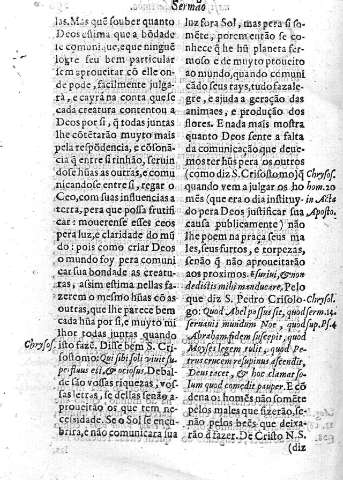 Sermão
las. Mas quẽ souber quanto
Deos estima que a bõdade
se comunique, e que ninguẽ
logre seu bem particular
sem aproueitar cõ elle on-
de pode, facilmente julga-
rà, e cayrá na conta que se
cada creatura contentou a
Deos por si, q̃ todas juntas
lhe cõtẽtarão muyto mais
pela respõdencia, e cõsonã-
cia q̃ entre si rinhão, seruin
do se hũas as outras, e comu
nicandose entre si, regar o
Ceo, com suas influencias a
terra, pera que possa frutifi
car: mouerense esses ceos
pera luz, e claridade do mũ
do: pois como criar Deos
o mundo foy pera comuni
car sua bondade as creatu-
ras, assim estima nellas fa-
zerem o mesmo hũas cõ as
outras, que lhe parece bem
cada hũa por si, e muyto mi
lhor todas juntas quando
isto fazẽ. Disse bem S. Cri
Chrysos.
sostomo: Qui sibi soli viuit su-
perfluus est, & ociosus. Debal-
de são vossas riquezas, vos-
sas letras, se dellas senão a-
proueitão os que tem ne-
cessidade. Se o Sol se encu-
brira, e não comunicara sua
luz fora Sol, mas pera si so-
mẽte, porem então se co-
nhece q̃ he hũ planeta fer-
moso e de muyto proueito
ao mundo, quando comuni
cado seus rays, tudo fazale-
gre, e ajuda a geração das
animaes, e produção dos
flores. E nada mais mostra
quanto Deos sente a falta
da comunicação que deue-
mos ter hũs pera os outros
(como diz S. Crisostomo) q̃
Chrysos.
quando vem a julgar os ho
hom. 20
mẽs (que era o dia instituy-
in Acta
do pera Deos justificar sua
Aposto.
causa publicamente) não
lhe poem na praça seus ma
les, seus furtos, e torpezas,
senão q̃ não aproueitarão
aos proximos. Esuriui, & non
dedistis mihi manducare. Pelo
que diz S. Pedro Crisolo-
Chrysol.
go: Quod Abel possus sit, quod
serm. 14.
seruauit mundum Noe, quod
sup. Ps. 4
Abraham fidem suscepit, quod
Moyses legem tulit, quod Pe-
trus crucem resupinus ascendit,
Deus tacet, & hoc clamat so-
lum quod comedit pauper. E cõ
dena os homẽs não somẽte
pelos males que fizerão, se-
não pelos bẽs que deixa-
rão d fazer. De Christo N. S.
(diz